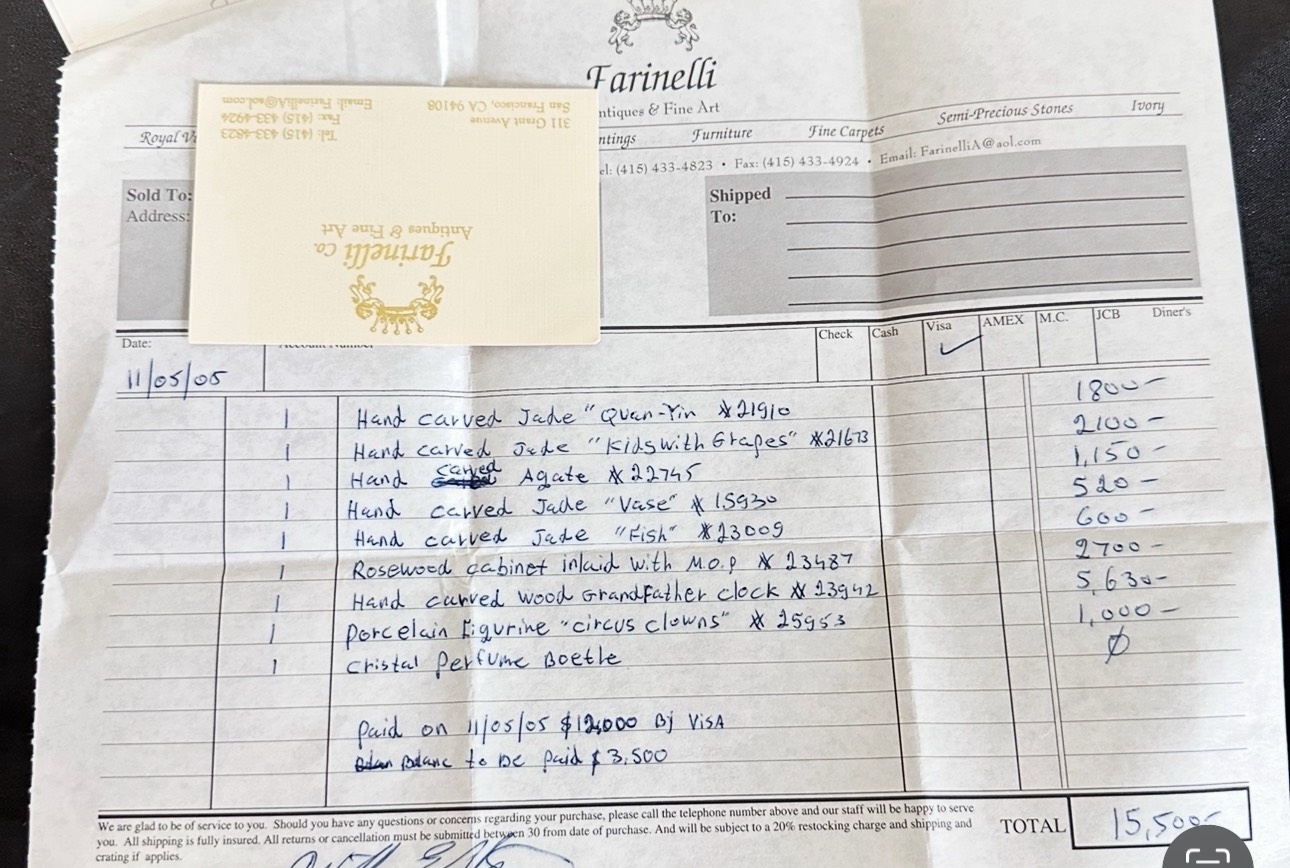 Farinelli
ntiques & Fine Art
Royal ntings Furniture Fine Carpets Semi-Precious Stones Ivory
el: (415) 433-4823 • Fax: (415) 433-4924 • Email: FarinelliA@aol.com
Farinelli Co.
Antiques & Fine Art
311 Grant Avenue
San Francisco, CA 94108
Tel: (415) 433-4823
Fax: (415) 433-4924
Email: FarinelliA@aol.com
Sold To:
Address:
Shipped
To:
Date: Account Number Check Cash Visa AMEX M.C. JCB Diner's
11/05/05 ✓
1 Hand carved Jade "Quan-Yin *21910 1800-
1 Hand carved Jade "Kids with Grapes" *21673 2100-
1 Hand carved Agate *22745 1,150-
1 Hand carved Jade "Vase" *15930 520-
1 Hand carved Jade "Fish" *23009 600-
1 Rosewood cabinet inlaid with M.O.P *23487 2700-
1 Hand carved wood GrandFather clock *23942 5,630-
1 Porcelain Figurine "circus clowns" *25953 1,000-
1 Cristal Perfume Boetle Ø
Paid on 11/05/05 $12,000 By VISA
Balanc to be paid $3,500
We are glad to be of service to you. Should you have any questions or concerns regarding your purchase, please call the telephone number above and our staff will be happy to serve
you. All shipping is fully insured. All returns or cancellation must be submitted between 30 from date of purchase. And will be subject to a 20% restocking charge and shipping and
crating if applies.
TOTAL 15,500-